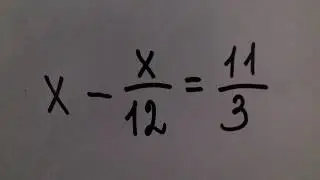 x - x/12 = 11/3